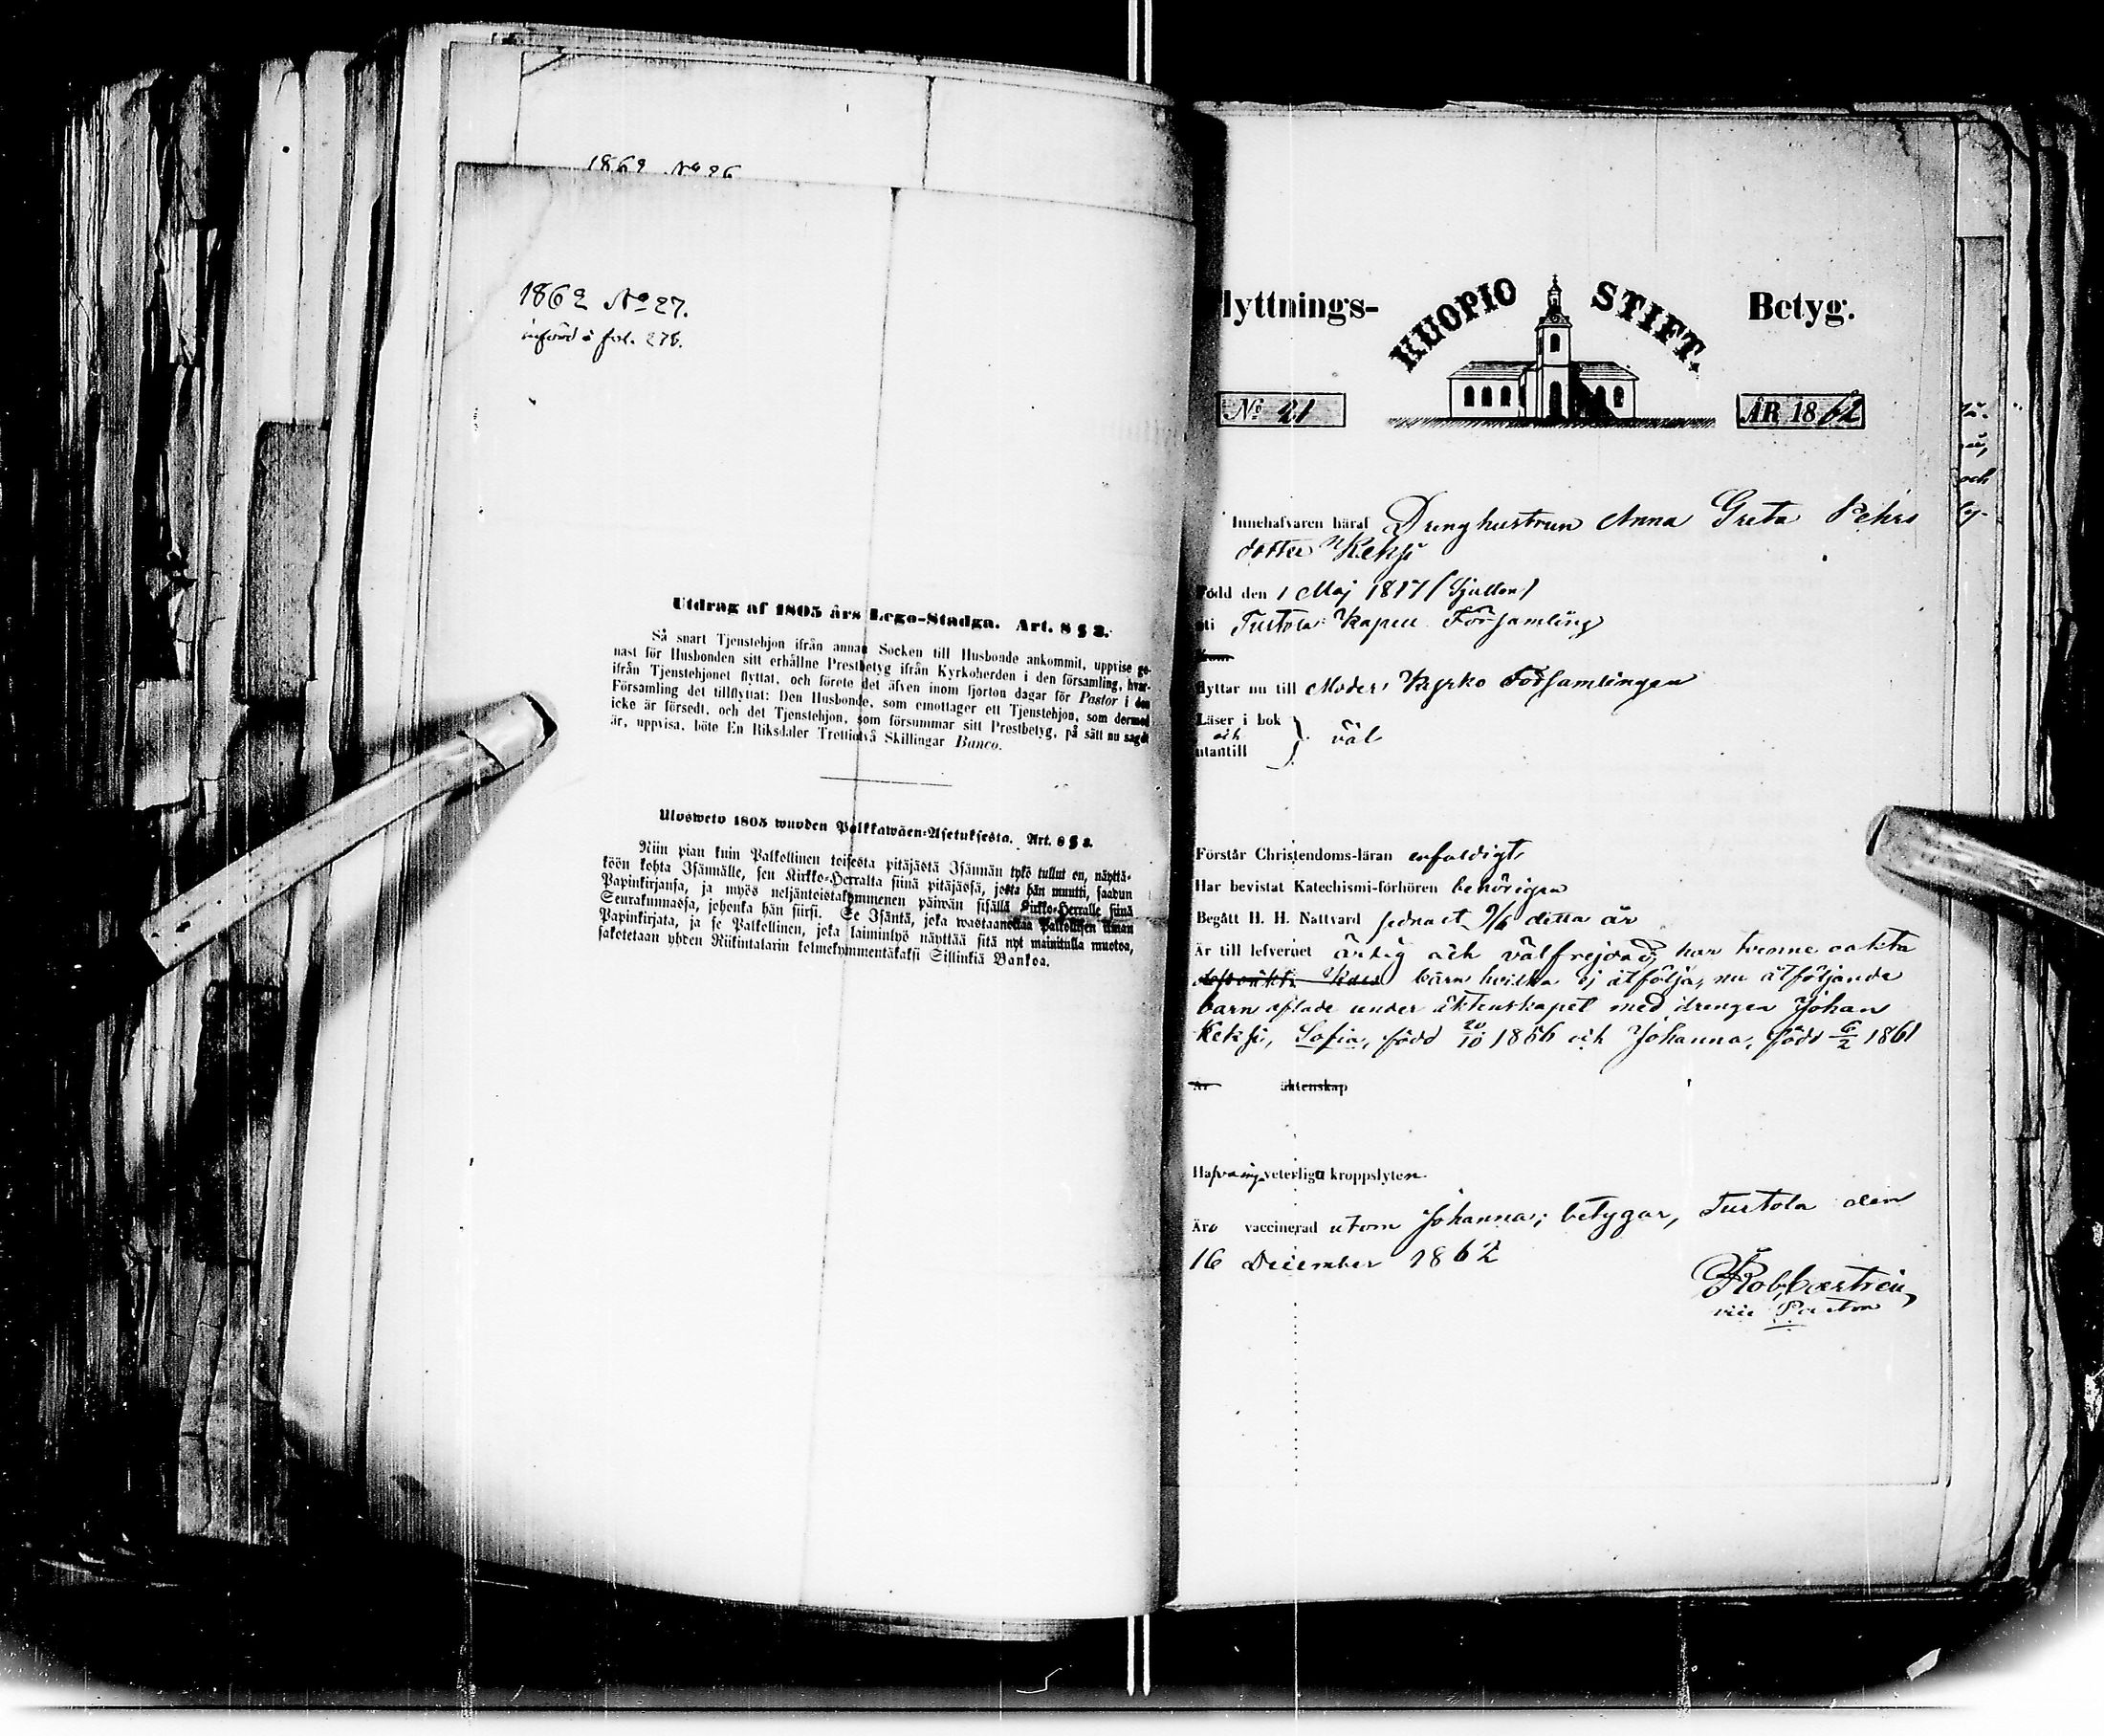 1862 No 26
1862 No 27.
införd å fol. 278.
Utdrag af 1805 års Lego-Stadga. Art. 8 § 3.
Så snart Tjenstehjon ifrån annan Socken till Husbonde ankommit, uppvise ge-
nast för Husbonden sitt erhållne Prestbetyg ifrån Kyrkoherden i den församling, hvar-
ifrån Tjenstehjonet flyttat, och förete det äfven inom fjorton dagar för Pastor i den
Församling det tillflyttat: Den Husbonde, som emottager ett Tjenstehjon, som dermed
icke är försedt, och det Tjenstehjon, som försummar sitt Prestbetyg, på sätt nu sagdt
är, uppvisa, böte En Riksdaler Trettiotvå Skillingar Banco.
Ulosweto 1805 wuoden Palkkawäen-Asetuksesta. Art. 8 § 3.
Niin pian kuin Palkollinen toisesta pitäjästä Isännän tykö tullut on, näyttä-
köön kohta Isännälle, sen Kirkko-Herralta siinä pitäjässä, josta hän muutti, saadun
Papinkirjansa, ja myös neljäntoistakymmenen päiwän sisällä Kirkko-Herralle siinä
Seurakunnassa, johonka hän siirsi. Se Isäntä, joka wastaanottaa Palkollisen ilman
Papinkirjata, ja se Palkollinen, joka laiminlyö näyttää sitä nyt mainitulla muotoa,
sakotetaan yhden Riikintalarin kolmekymmentäkaksi Sillinkiä Bankoa.
lyttnings- KUOPIO STIFT. Betyg.
No 21 ÅR 1862
Innehafvaren häraf Drenghustrun Anna Greta Pehrs
dotter Keksi
Född den 1 Maj 1817
uti Turtola Kapell Församling
flyttar nu till Moder Kyrko Församlingen
Läser i bok
och väl
utantill
Förstår Christendoms-läran enfaldigt
Har bevistat Katechismi-förhören behörigen
Begått H. H. Nattvard sednast 9/6 detta år
Är till lefvernet ärlig och välfrejdad, har tvenne oäkta
barn hvilka ej åtfölja, nu åtföljande
barn aflade under äktenskapet med drengen Johan
Keksi, Sofia, född 20/10 1856 och Johanna, född 6/2 1861
Är äktenskap
Hafva inga veterliga kroppslyten
Äro vaccinerad utom Johanna; betygar, Turtola den
16 December 1862
Rob. Castrén
vice Pastor